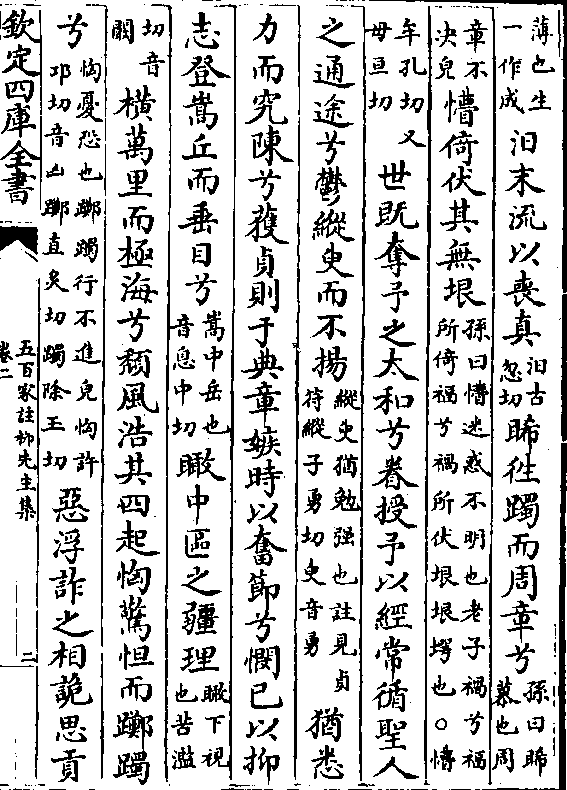 薄也生一作成汨末流以喪真汨古忽切睎往躅而周章兮孫曰睎慕也周
章不決皃懵倚伏其無垠孫曰懵迷惑不明也老子禍兮福所倚福兮禍所伏垠垠堮也○懵
牟孔切又毋亘切世既奪予之太和兮眷授予以經常循聖人
之通途兮鬱縱臾而不揚縱臾猶勉强也註見貞符縱子勇切臾音勇猶悉
力而究陳兮蒦貞則于典章嫉時以奮節兮憫己以抑
志登嵩丘而垂目兮嵩中岳也音息中切瞰中區之疆理瞰下視也苦濫
切音闞橫萬里而極海兮頹風浩其四起恟驚怛而躑躅
兮恟憂恐也躑躅行不進皃恟許邛切音凶躑直炙切躅除玉切惡浮詐之相詭思貢
欽定四庫全書
五百家註柳先生集
卷二
二